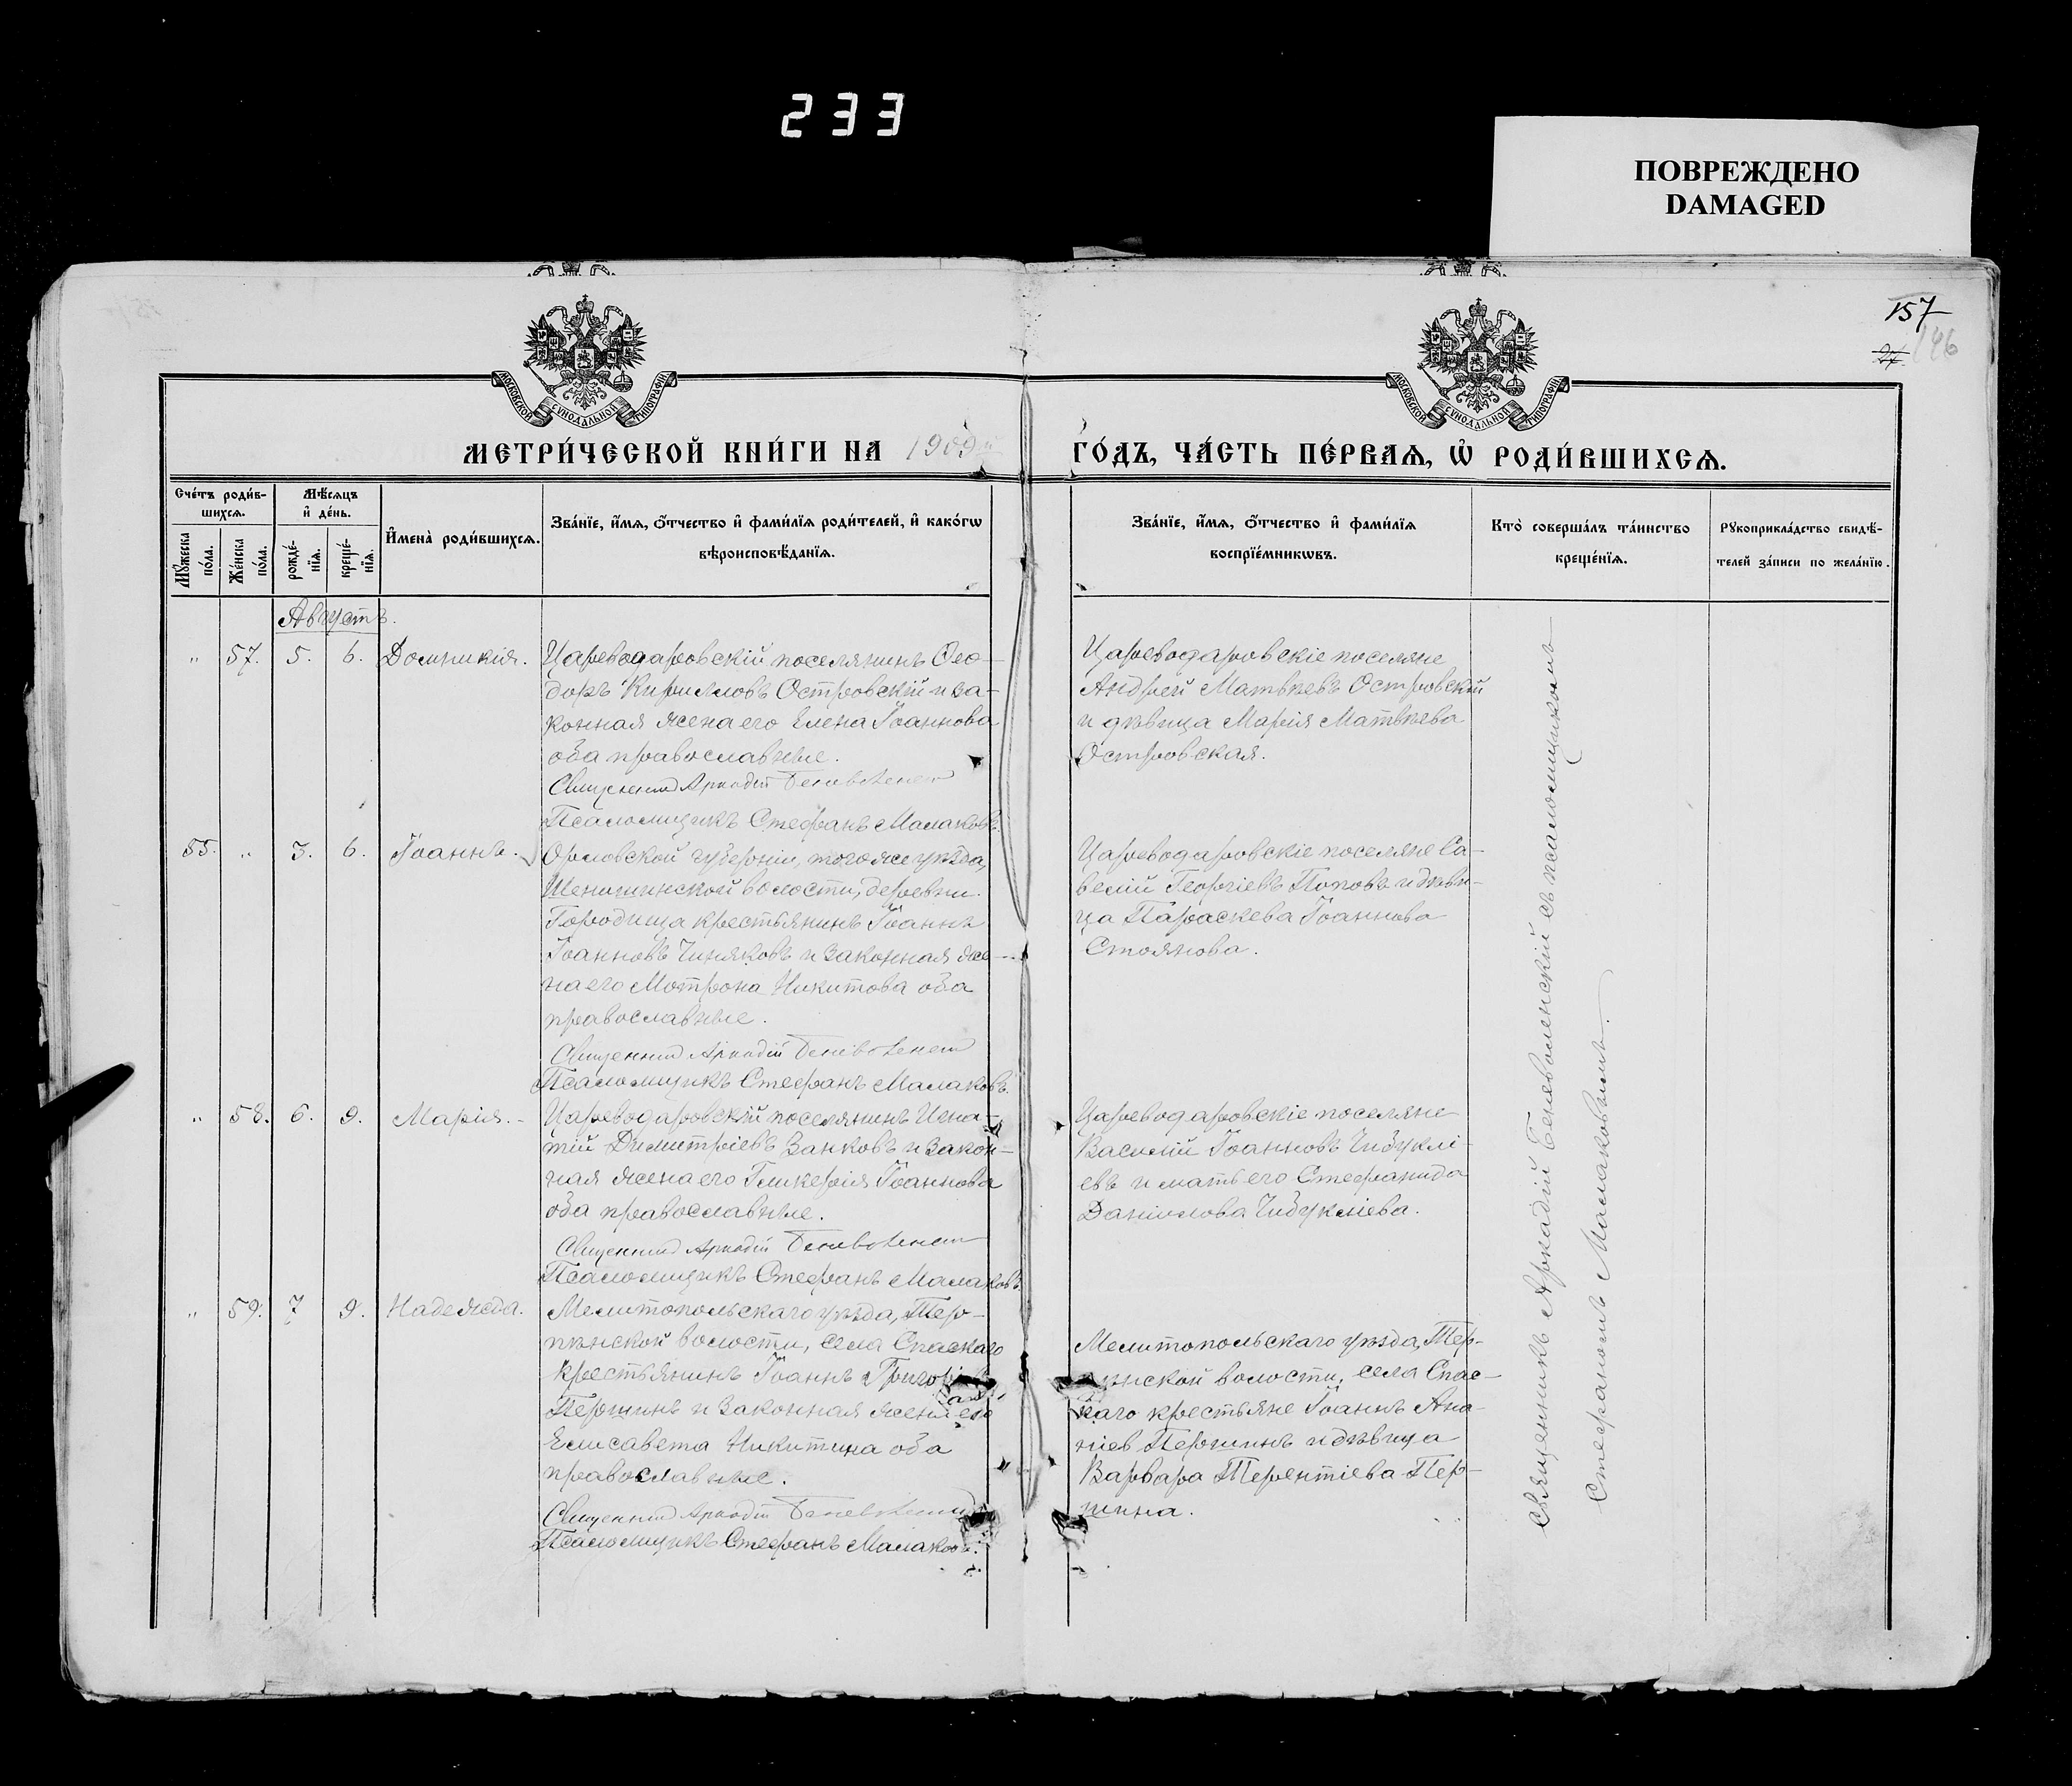 233
ПОВРЕЖДЕНО
DAMAGED
157
27 146
МОСКОВСКОЙ СѴНОДАЛЬНОЙ ТИПОГРАФІИ
МОСКОВСКОЙ СѴНОДАЛЬНОЙ ТИПОГРАФІИ
МЕТРИ́ЧЕСКОЙ КНИ́ГИ НА 1909й ГО́ДЪ, ЧА́СТЬ ПЕ́РВАѦ, Ѽ РОДИ́ВШИХСѦ.
Сче́тъ роди́в-
шихсѧ.
Мꙋ́жеска по́ла.
Же́нска по́ла.
Мѣ́сѧцъ
и҆ де́нь.
рожде́-
нїѧ.
креще́-
нїѧ.
И҆мена̀ роди́вшихсѧ.
Зва́нїе, и҆́мѧ, ѻ҆́тчество и҆ фами́лїѧ роди́телей, и҆ како́гѡ
вѣроисповѣ́данїѧ.
Зва́нїе, и҆́мѧ, ѻ҆́тчество и҆ фами́лїѧ
воспрїе́мникѡвъ.
Кто̀ соверша́лъ та́инство
креще́нїѧ.
Рꙋкоприкла́дство свидѣ́-
телей за́писи по жела́нїю.
Августъ.
" 57. 5. 6. Домникія.
Цареводаровскій поселянинъ Ѳео-
доръ Кирилловъ Островскій и за-
конная жена его Елена Іоаннова
оба православные.
Священник Аркадій Беневоленский
Псаломщикъ Стефанъ Малаковъ.
Цареводаровскіе поселяне
Андрей Матвѣевъ Островскій
и дѣвица Марія Матвѣева
Островская.
55. " 3. 6. Іоаннъ.
Орловской губерніи, того же уѣзда,
волости, деревни
Городища крестьянинъ Іоаннъ
Іоанновъ Чиняковъ и законная же-
на его Мотрона Никитова оба
православные.
Священник Аркадій Беневоленский
Псаломщикъ Стефанъ Малаковъ.
Цареводаровскіе поселяне Са-
велій Георгіевъ Поповъ и дѣви-
ца Параскева Іоаннова
Стоянова.
" 58. 6. 9. Марія.
Цареводаровскій поселянинъ Игна-
тій Димитріевъ Занковъ и закон-
ная жена его Гликерія Іоаннова
оба православные.
Священник Аркадій Беневоленский
Псаломщикъ Стефанъ Малаковъ.
Цареводаровскіе поселяне
Василій Іоанновъ Чибуклі-
евъ и мать его Стефанида
Даніилова Чибукліева.
" 59. 7 9. Надежда.
Мелитопольскаго уѣзда, Тер-
пѣнской волости, села Спаскаго
крестьянинъ Іоаннъ
Першинъ и законная жена его
Елисавета Никитина оба
православные.
Священник Аркадій Беневоленский
Псаломщикъ Стефанъ Малаковъ.
Мелитопольскаго уѣзда, Тер-
пѣнской волости, села Спас-
каго крестьяне Іоаннъ Ана-
ніев Першинъ и дѣвица
Варвара Терентіева Пер-
шина.
Священникъ Аркадій Беневоленскій съ псаломщикомъ
Стефаномъ Малаковымъ.